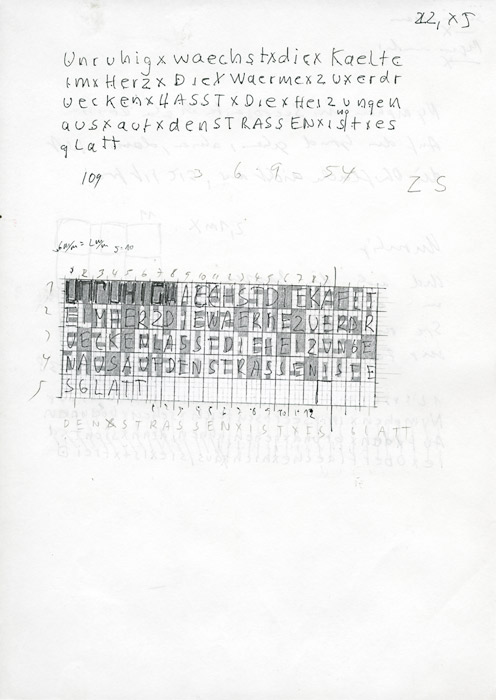 22, x 5
Unruhigxwaechstxdiex Kaelte
imxHerzxDiexWaermexzuxerdr
ueckenxLASSTxDiexHeizungen
ausxaufxdenSTRASSENxistxes
glatt
109 3 6 9 54 Z S
1 2 3 4 5 6 7 8 9 10 11
1 UNRUHIGWAECHSTDIEKAELT
2 EIMHERZDIEWAERMEZUERDR
3 UECKENLASSTDIEHEIZUNGE
4 NAUSAUFDENSTRASSENISTE
5 SGLATT
DENXSTRASSENXISTXES GLATT